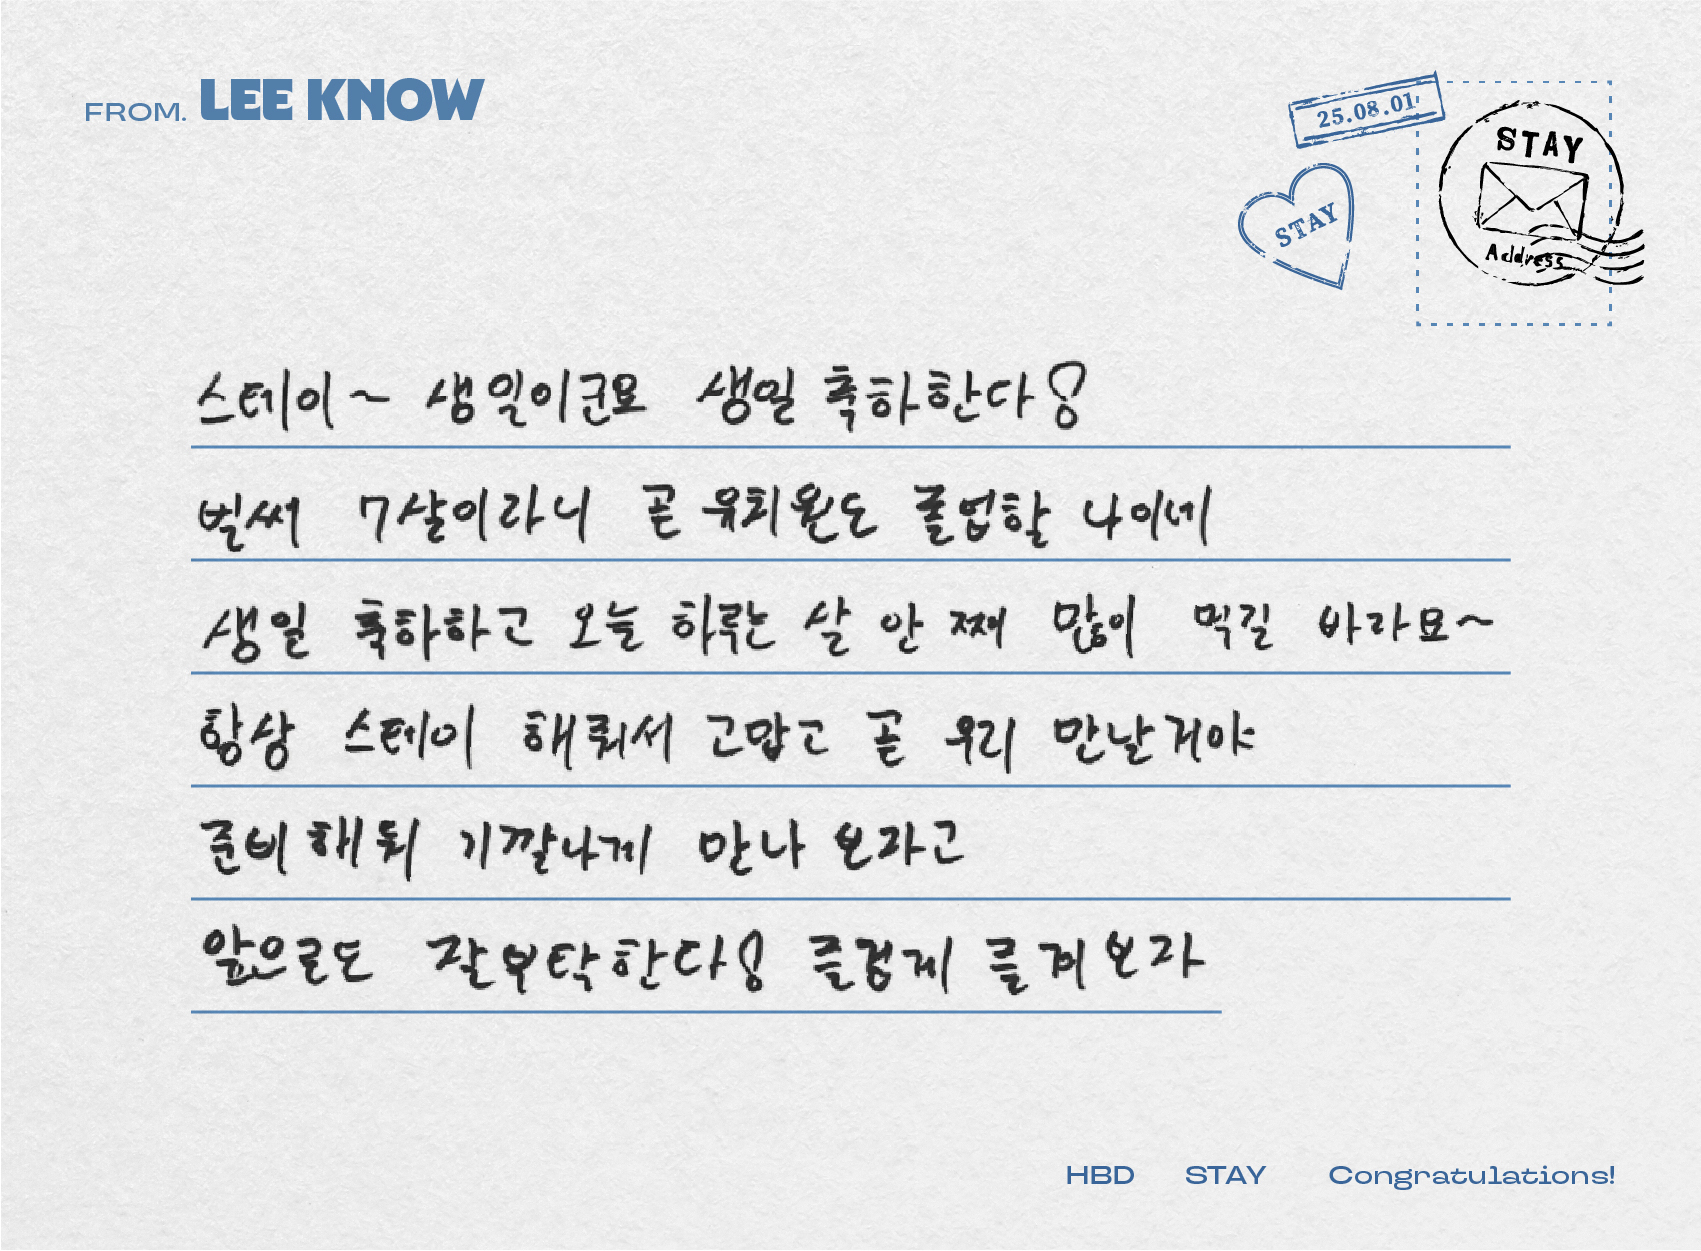 FROM. LEE KNOW
25.08.01
STAY
STAY
Address
스테이~ 생일이군묘 생일 축하한다!
벌써 7살이라니 곧 유치원도 졸업할 나이네
생일 축하하고 오늘 하루는 살 안 찌 많이 먹길 바라묘~
항상 스테이 해줘서 고맙고 곧 우리 만날거야
준비해둬 기깔나게 만나 보자고
앞으로도 잘 부탁한다! 즐겁게 즐겨보자
HBD STAY Congratulations!